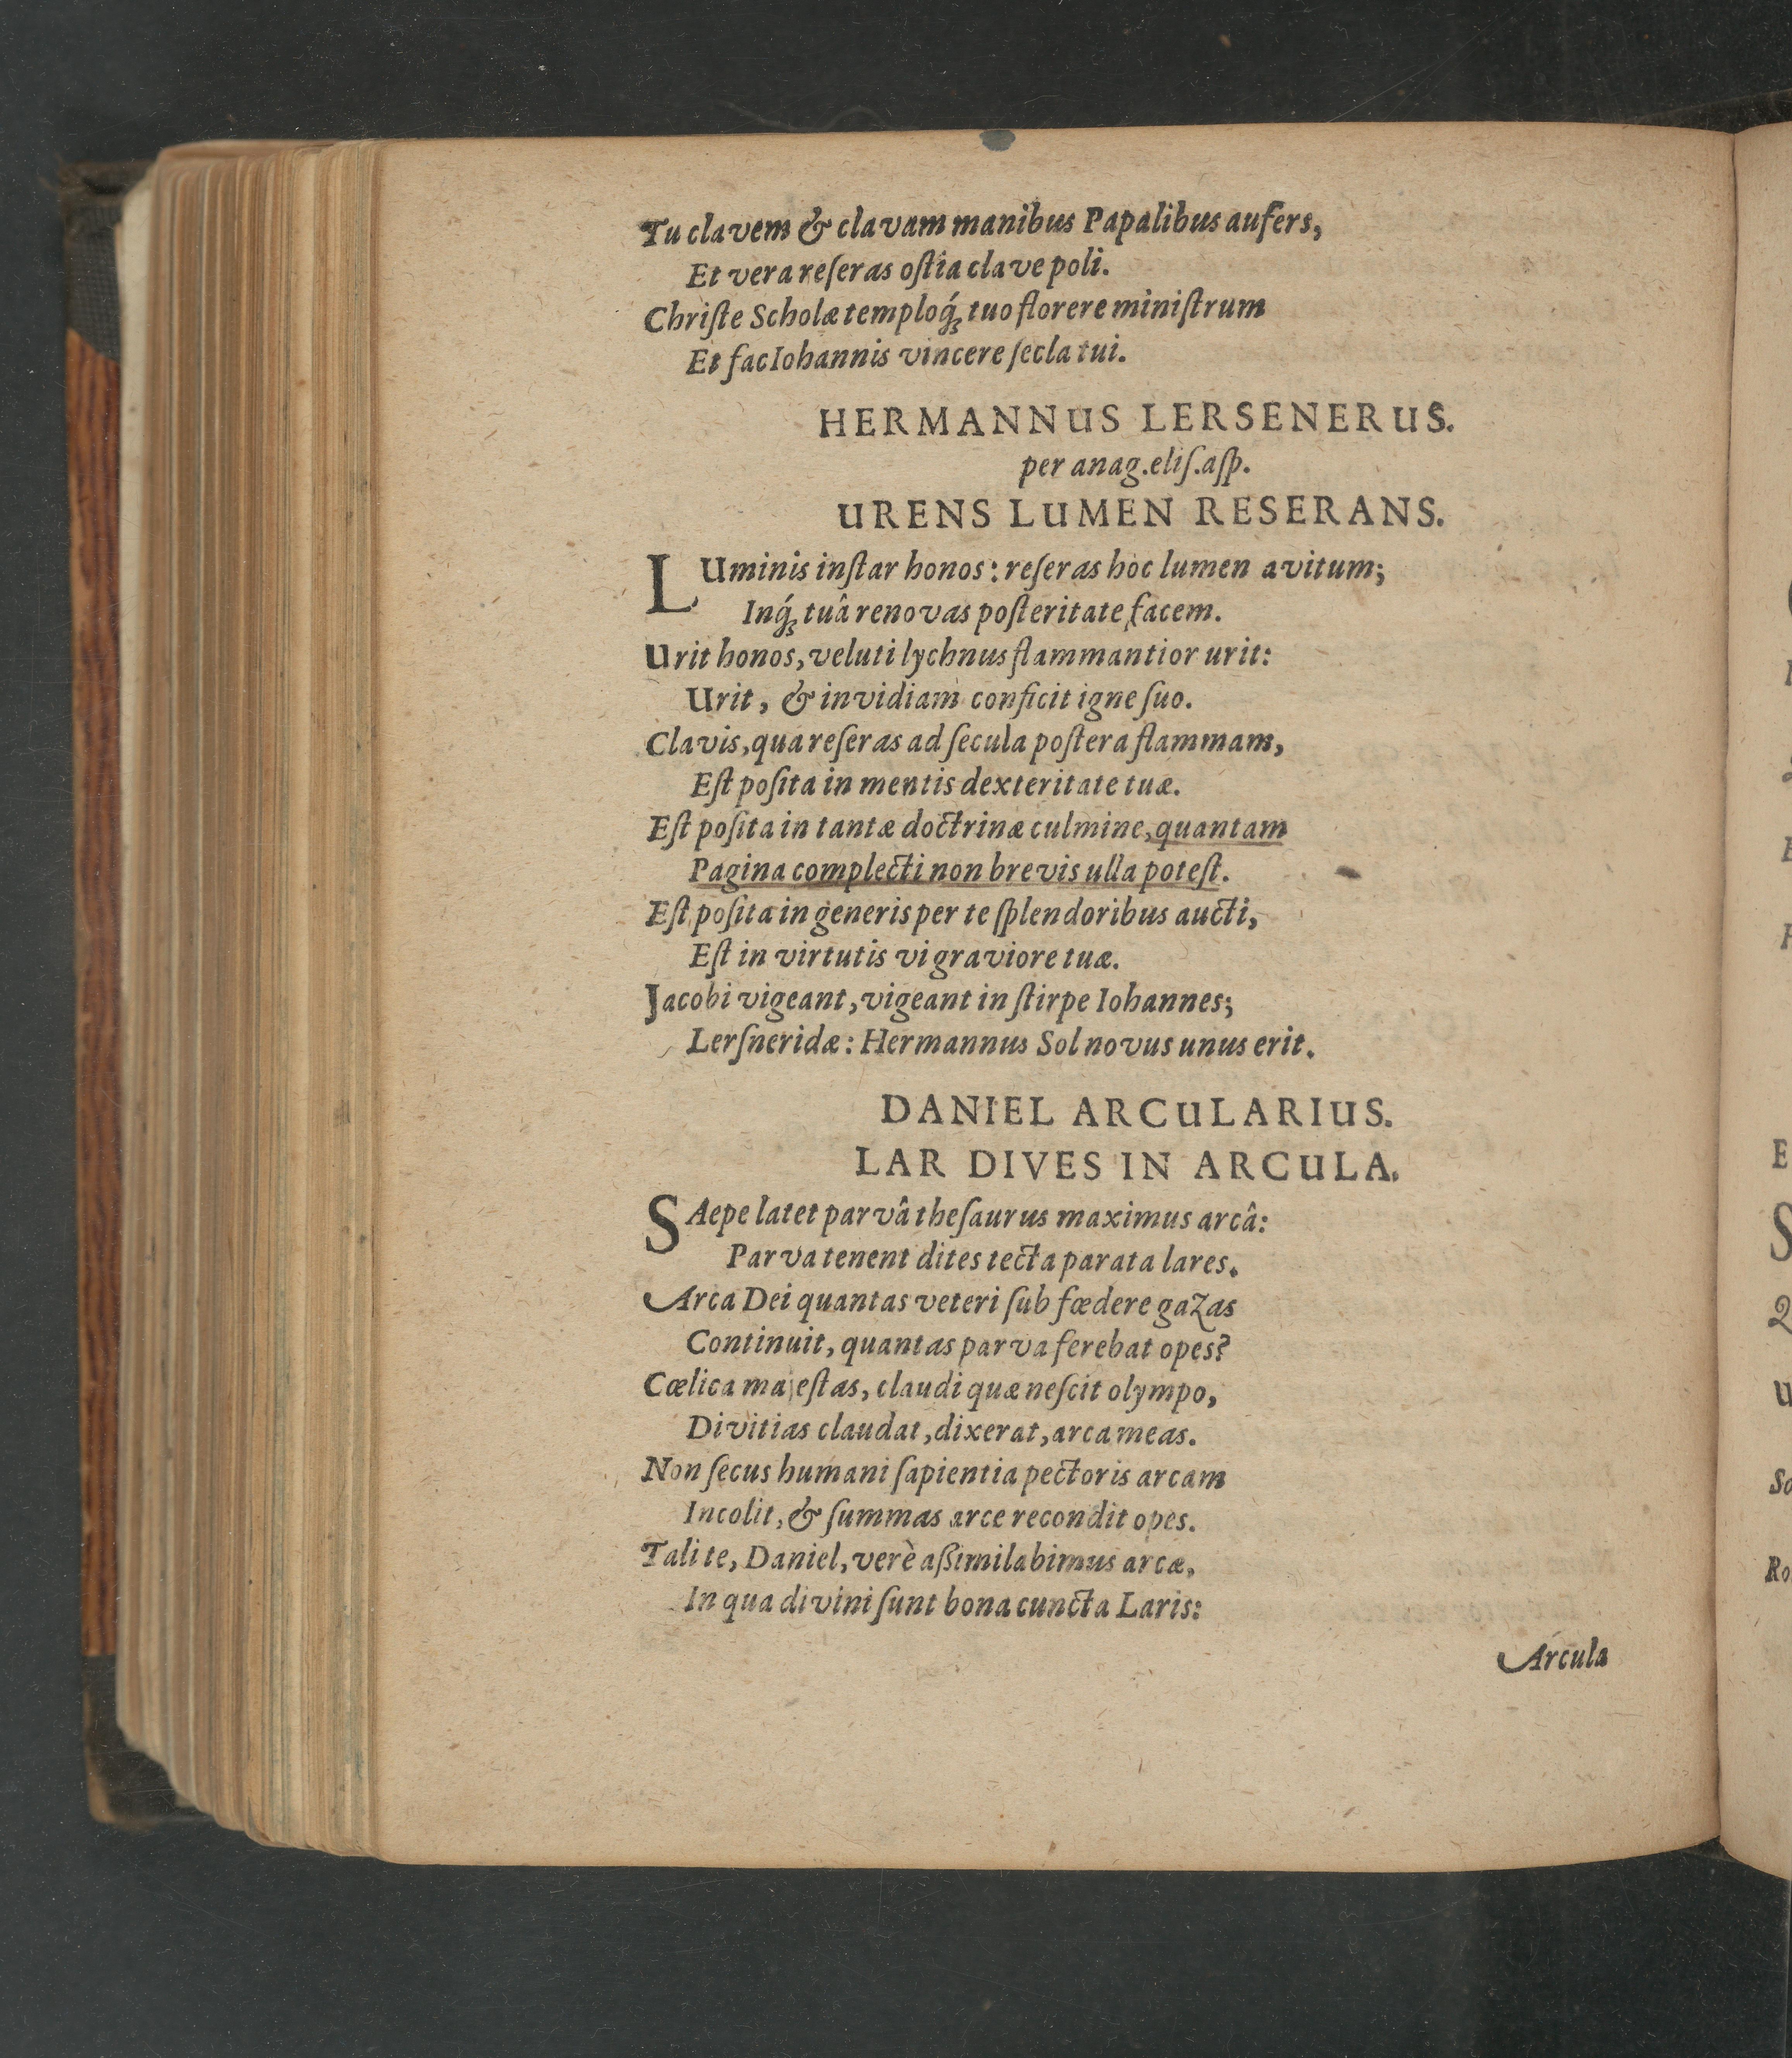 Tu clavem & clavam manibus Papalibus aufers,
Et vera reſeras oſtia clave poli.
Chriſte Scholæ temploq́ꝫ tuo florere miniſtrum
Et fac Iohannis vincere ſecla tui.
HERMANNUS LERSENERUS.
per anag.eliſ.aſp.
URENS LUMEN RESERANS.
LUminis inſtar honos: reſeras hoc lumen avitum;
Inq́ꝫ tuâ renovas poſteritate facem.
Urit honos, veluti lychnus flammantior urit:
Urit, & invidiam conficit igne ſuo.
Clavis, qua reſeras ad ſecula poſtera flammam,
Eſt poſita in mentis dexteritate tuæ.
Eſt poſita in tantæ doctrinæ culmine, quantam
Pagina complecti non brevis ulla poteſt.
Eſt poſita in generis per te ſplendoribus aucti,
Eſt in virtutis vi graviore tuæ.
Jacobi vigeant, vigeant in ſtirpe Iohannes;
Lerſneridæ: Hermannus Sol novus unus erit.
DANIEL ARCULARIUS.
LAR DIVES IN ARCULA.
SAepe latet parvâ theſaurus maximus arcâ:
Parva tenent dites tecta parata lares.
Arca Dei quantas veteri ſub fœdere gazas
Continuit, quantas parva ferebat opes?
Cœlica majeſtas, claudi quæ neſcit olympo,
Divitias claudat, dixerat, arca meas.
Non ſecus humani ſapientia pectoris arcam
Incolit, & ſummas arce recondit opes.
Tali te, Daniel, verè aßimilabimus arcæ,
In qua divini ſunt bona cuncta Laris:
Arcula